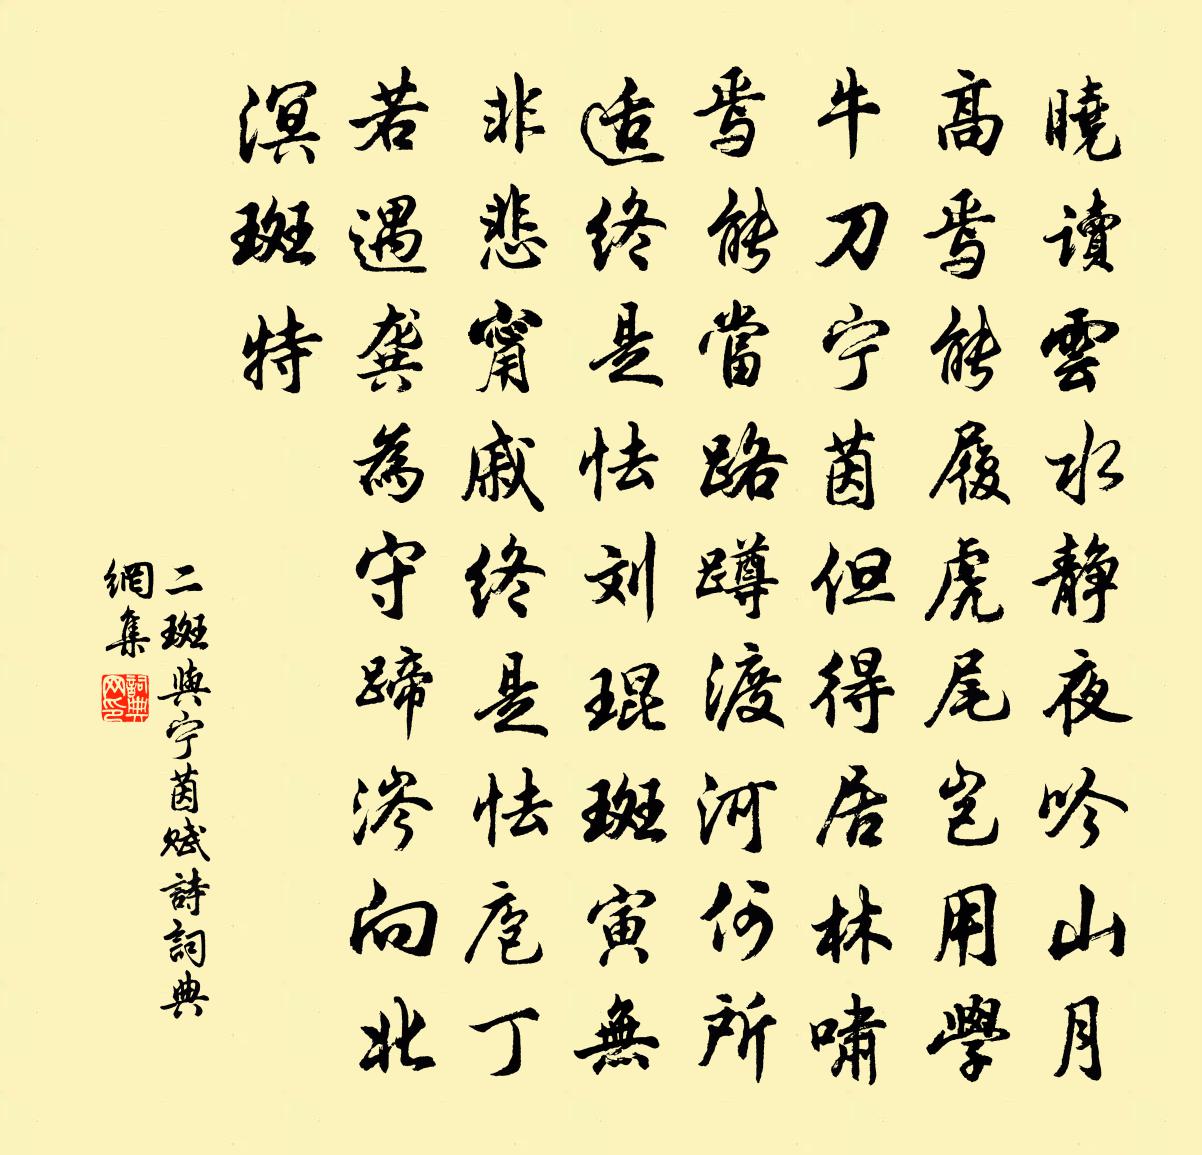 曉讀雲水静夜吟山月
高焉能履虎尾豈用學
牛刀宁茵但得居林嘯
焉能當路蹲渡河何所
适终是怯刘琨斑寅無
非悲甯戚终是怯庖丁
若遇龔為守蹄涔向北
溟斑特
二斑與宁茵赋詩詞典
網集
詞典
网印